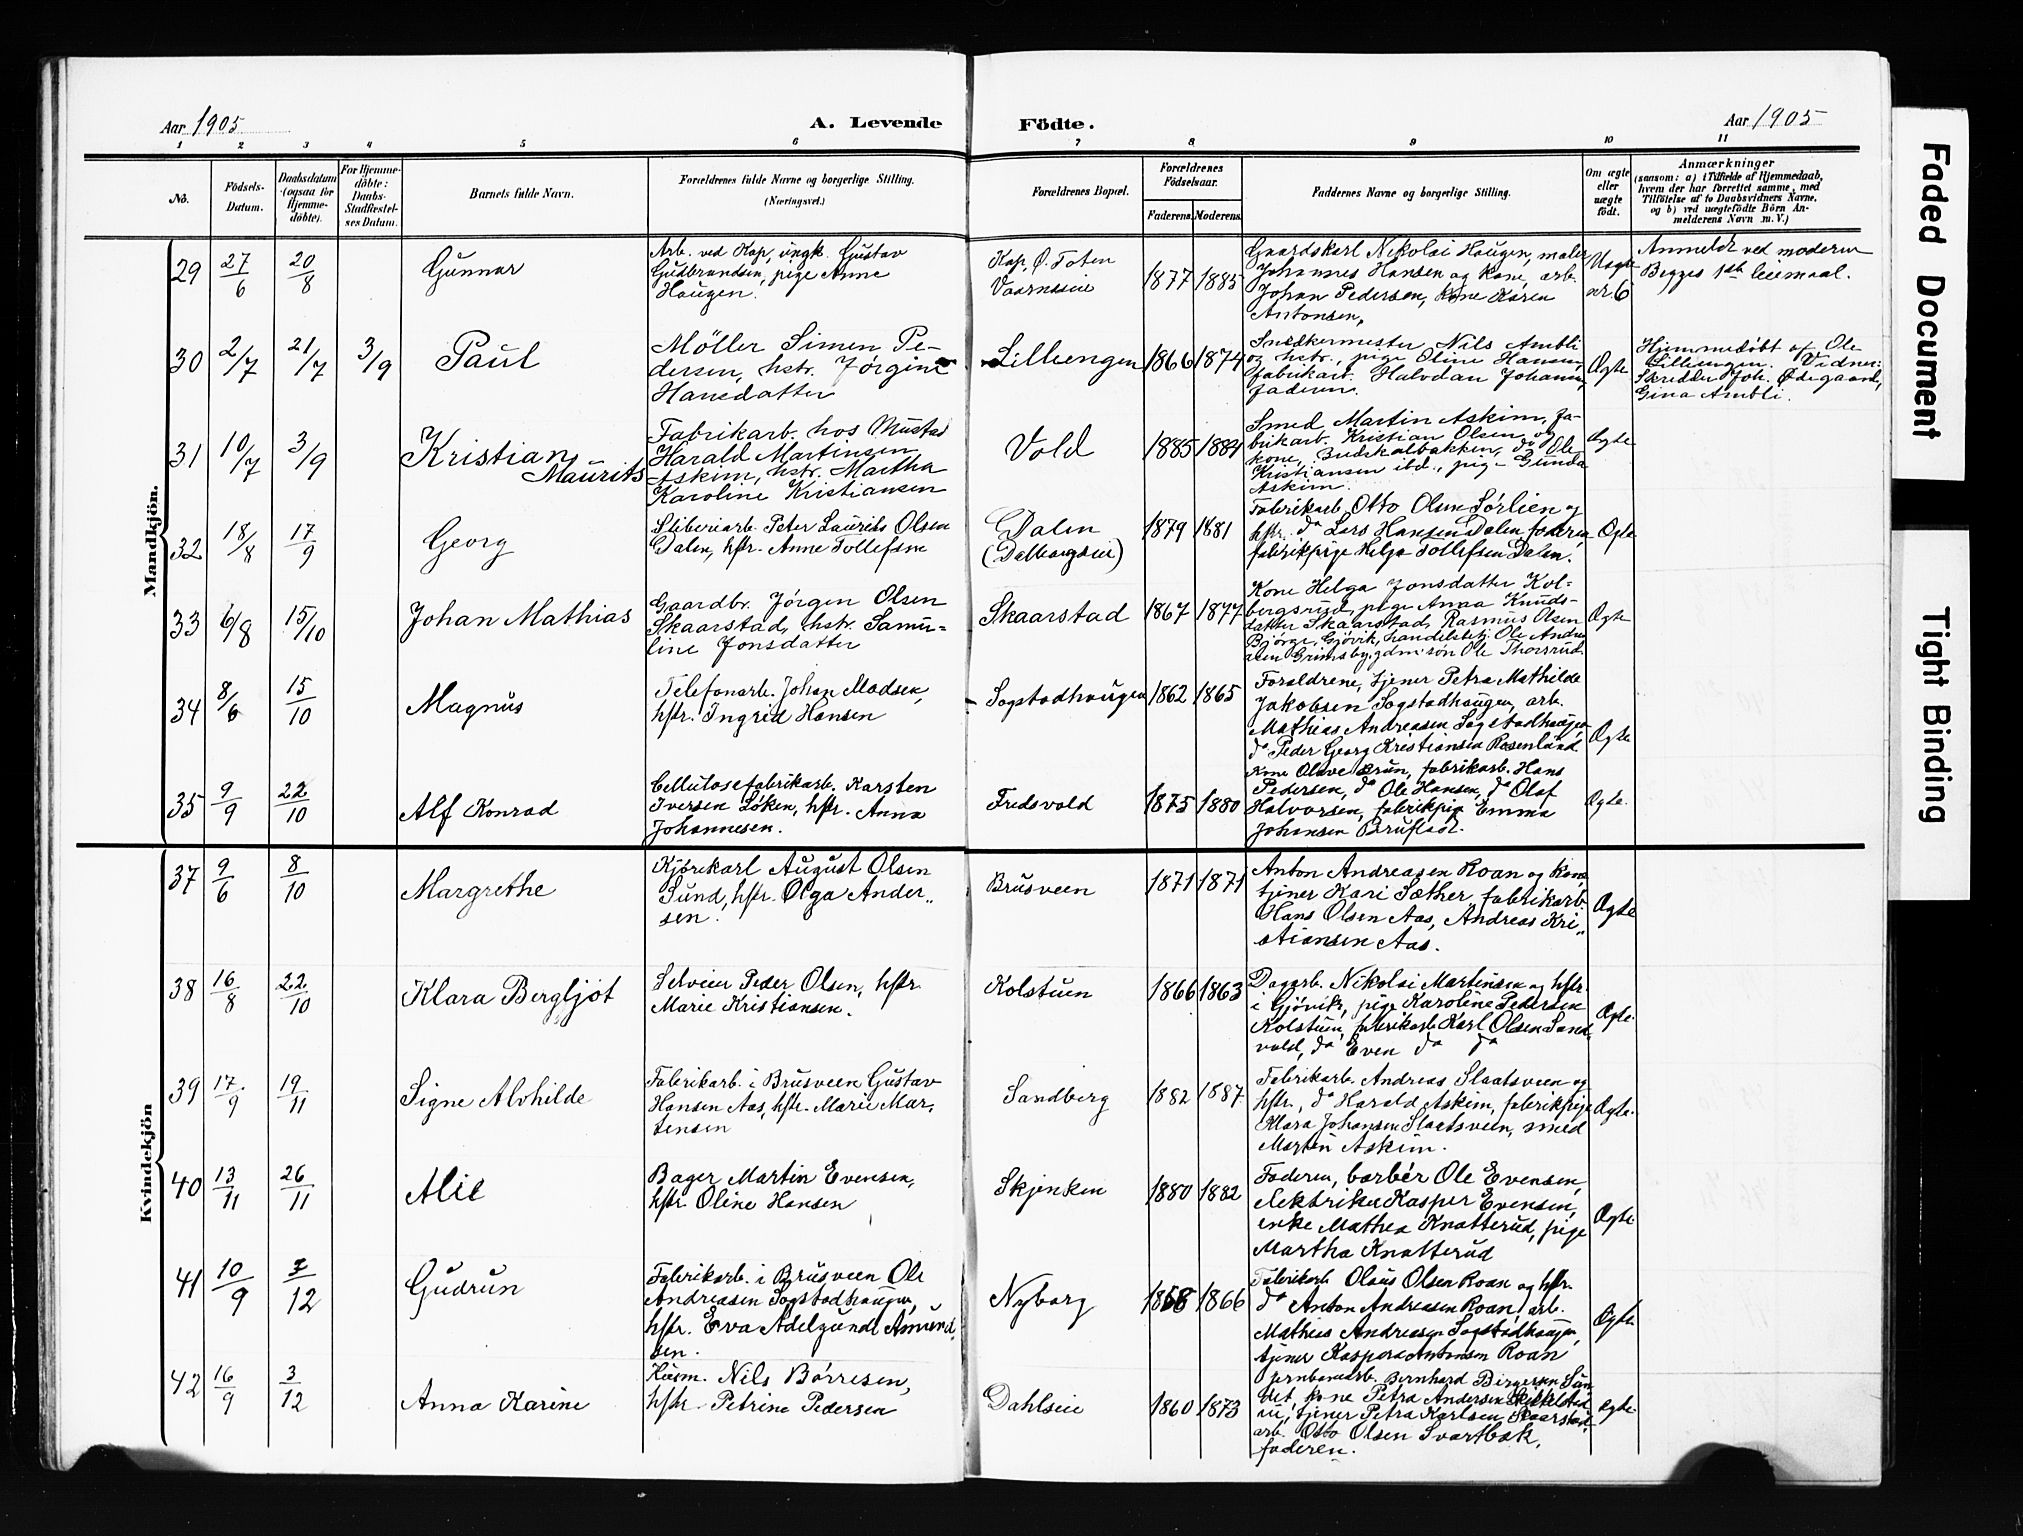 Aar 1905
A. Levende
Födte.
Aar 1905
1 2 3 4 5 6 7 8 9 10 11
No.
Födsels-
Datum.
Daabsdatum
(ogsaa for
Hjemme-
döbte).
For Hjemme-
döbte:
Daabs-
Stadfæstel-
ses Datum.
Barnets fulde Navn.
Forældrenes fulde Navne og borgerlige Stilling.
(Næringsvei.)
Forældrenes Bopæl.
Forældrenes
Födselsaar.
Faderens. Moderens.
Faddernes Navne og borgerlige Stilling.
Om ægte
eller
uægte
født.
Anmærkninger
(saasom: a) i Tilfælde af Hjemmedaab,
hvem der har forrettet samme, med
Tilföielse af to Daabsvidners Navne,
og b) ved uægtefödte Börn An-
melderens Navn m. V.)
Mandkjön.
29 27/6 20/8
Gunnar
Arb. ved Kap, ungk. Gustav
Gudbrandsen, pige Anne
Haugen.
Kap, Ø. Toten
1877 1885
Gaardskarl Nikolai Haugen, maler
Johannes Hansen og kone, arb.
Johan Pedersen, kone Karen
Antonsen,
Uægte
nr. 6
Anmeldt ved moderen
Begges 1ste leiemaal.
30 2/7 21/7 3/9
Paul
Möller Simen Pe-
dersen, hstr. Jørgine
Hansdatter
Lillengen
1866 1874
Snedkermester Nils Ambli
og hstr., pige Oline Hansen,
fabrikarb. Halvdan Johansen,
faderen.
Ægte
Hjemmedöbt af Ole
Lillengen. Vidner:
Skrædder Joh. Ødegaard,
Gina Ambli.
31 10/7 3/9
Kristian
Maurits
Fabrikarb. hos Mustad
Harald Martinsen
Askim, hstr. Martha
Karoline Kristiansen
Vold
1885 1884
Smed Martin Askim, fa-
brikarb. Kristian Olsen og
kone, do Ole
Kristiansen ibd., pige Gunda
Askim.
Ægte
32 18/8 17/9
Georg
Sliberiarb. Peter Laurits Olsen
Dalen, hstr. Anne Tollefsen
Dalen
1879 1881
Fabrikarb. Otto Olsen Sørlien og
hstr. do Lars Hansen Dalen, faderen,
fabrikpige Helga Tollefsen Dalen.
Ægte
33 6/8 15/10
Johan Mathias
Gaardbr. Jørgen Olsen
Skaarstad, hstr. Samu-
line Jonsdatter
Skaarstad
1867 1877
Kone Helga Jonsdatter Kol-
bergsrud, pige Anna Knuds-
datter Skaarstad, Rasmus Olsen
Bjørge, Gjøvik, handelsbetj. Ole Andre-
asen Grimsby, gdm. søn Ole Thorsrud.
Ægte
34 8/6 15/10
Magnus
Telefonarb. Johan Madsen,
hstr. Ingrid Hansen
Sogstadhaugen
1862 1865
Forældrene, tjener Petra Mathilde
Jakobsen Sogstadhaugen, arb.
Mathias Andreasen Sogstadhaugen
do Peder Georg Kristiansen Rosenlund
Ægte
35 9/9 22/10
Alf Konrad
Cellulosefabrikarb. Karsten
Iversen Løken, hstr. Anna
Johannesen.
Fredsvold
1875 1880
Kone Olave Brun, fabrikarb. Hans
Pedersen, do Ole Hansen, do Olaf
Halvorsen, fabrikpige Emma
Johansen Bruflaat.
Ægte.
Kvindekjön
37 9/6 8/10
Margrethe
Kjørekarl August Olsen
Sund, hstr. Olga Ander„
sen.
Brusveen
1871 1871
Anton Andreasen Roan og kone,
tjener Kari Sæther, fabrikarb.
Hans Olsen Aas, Andreas Kri„
stiansen Aas.
Ægte
38 16/8 22/10
Klara Bergljot
Selveier Peder Olsen, hstr.
Marie Kristiansen.
Kolstuen
1866 1863
Dagarb. Nikolai Martinsen og hstr.
i Gjövik, pige Karoline Pedersen
Kolstuen, fabrikarb. Karl Olsen Sand-
vold, do Even do do
Ægte.
39 17/9 19/11
Signe Alvhilde
Fabrikarb. i Brusveen Gustav
Hansen Aas, hstr. Marie Mar-
tensen
Sandberg
1882 1887
Fabrikarb. Andreas Slaatsveen og
hstr., do Harald Askim, fabrikpige
Klara Johansen Slaatsveen, smed
Martin Askim.
Ægte.
40 13/11 26/11
Alic
Bager Martin Evensen,
hstr. Oline Hansen
Skjenken
1880 1882
Faderen, barbér Ole Evensen,
elektriker Kasper Evensen,
enke Mathea Knatterud, pige
Martha Knatterud
Ægte
41 10/9 3/12
Gudrun
Fabrikarb. i Brusveen Ole
Andreasen Sogstadhaugen,
hstr. Eva Adelgunde Amund
sen.
Nyborg
1866
Fabrikarb. Olaus Olsen Roan og hstr.
do Anton Andreasen Roan, arb.
Mathias Andreasen Sogstadhaugen,
tjener Kaspara Antonsen Roan
Ægte
42 16/9 3/12
Anna Karine
Husm. Nils Børresen,
hstr. Petrine Pedersen
Dahlseie
1860 1873
Jernbanearb. Bernhard Birgersen Sun
det, kone Petra Andersen
tjener Petra Karlsen Skaarstad,
arb. Otto Olsen Svartbæk,
faderen.
Ægte.
Faded Document
Tight Binding